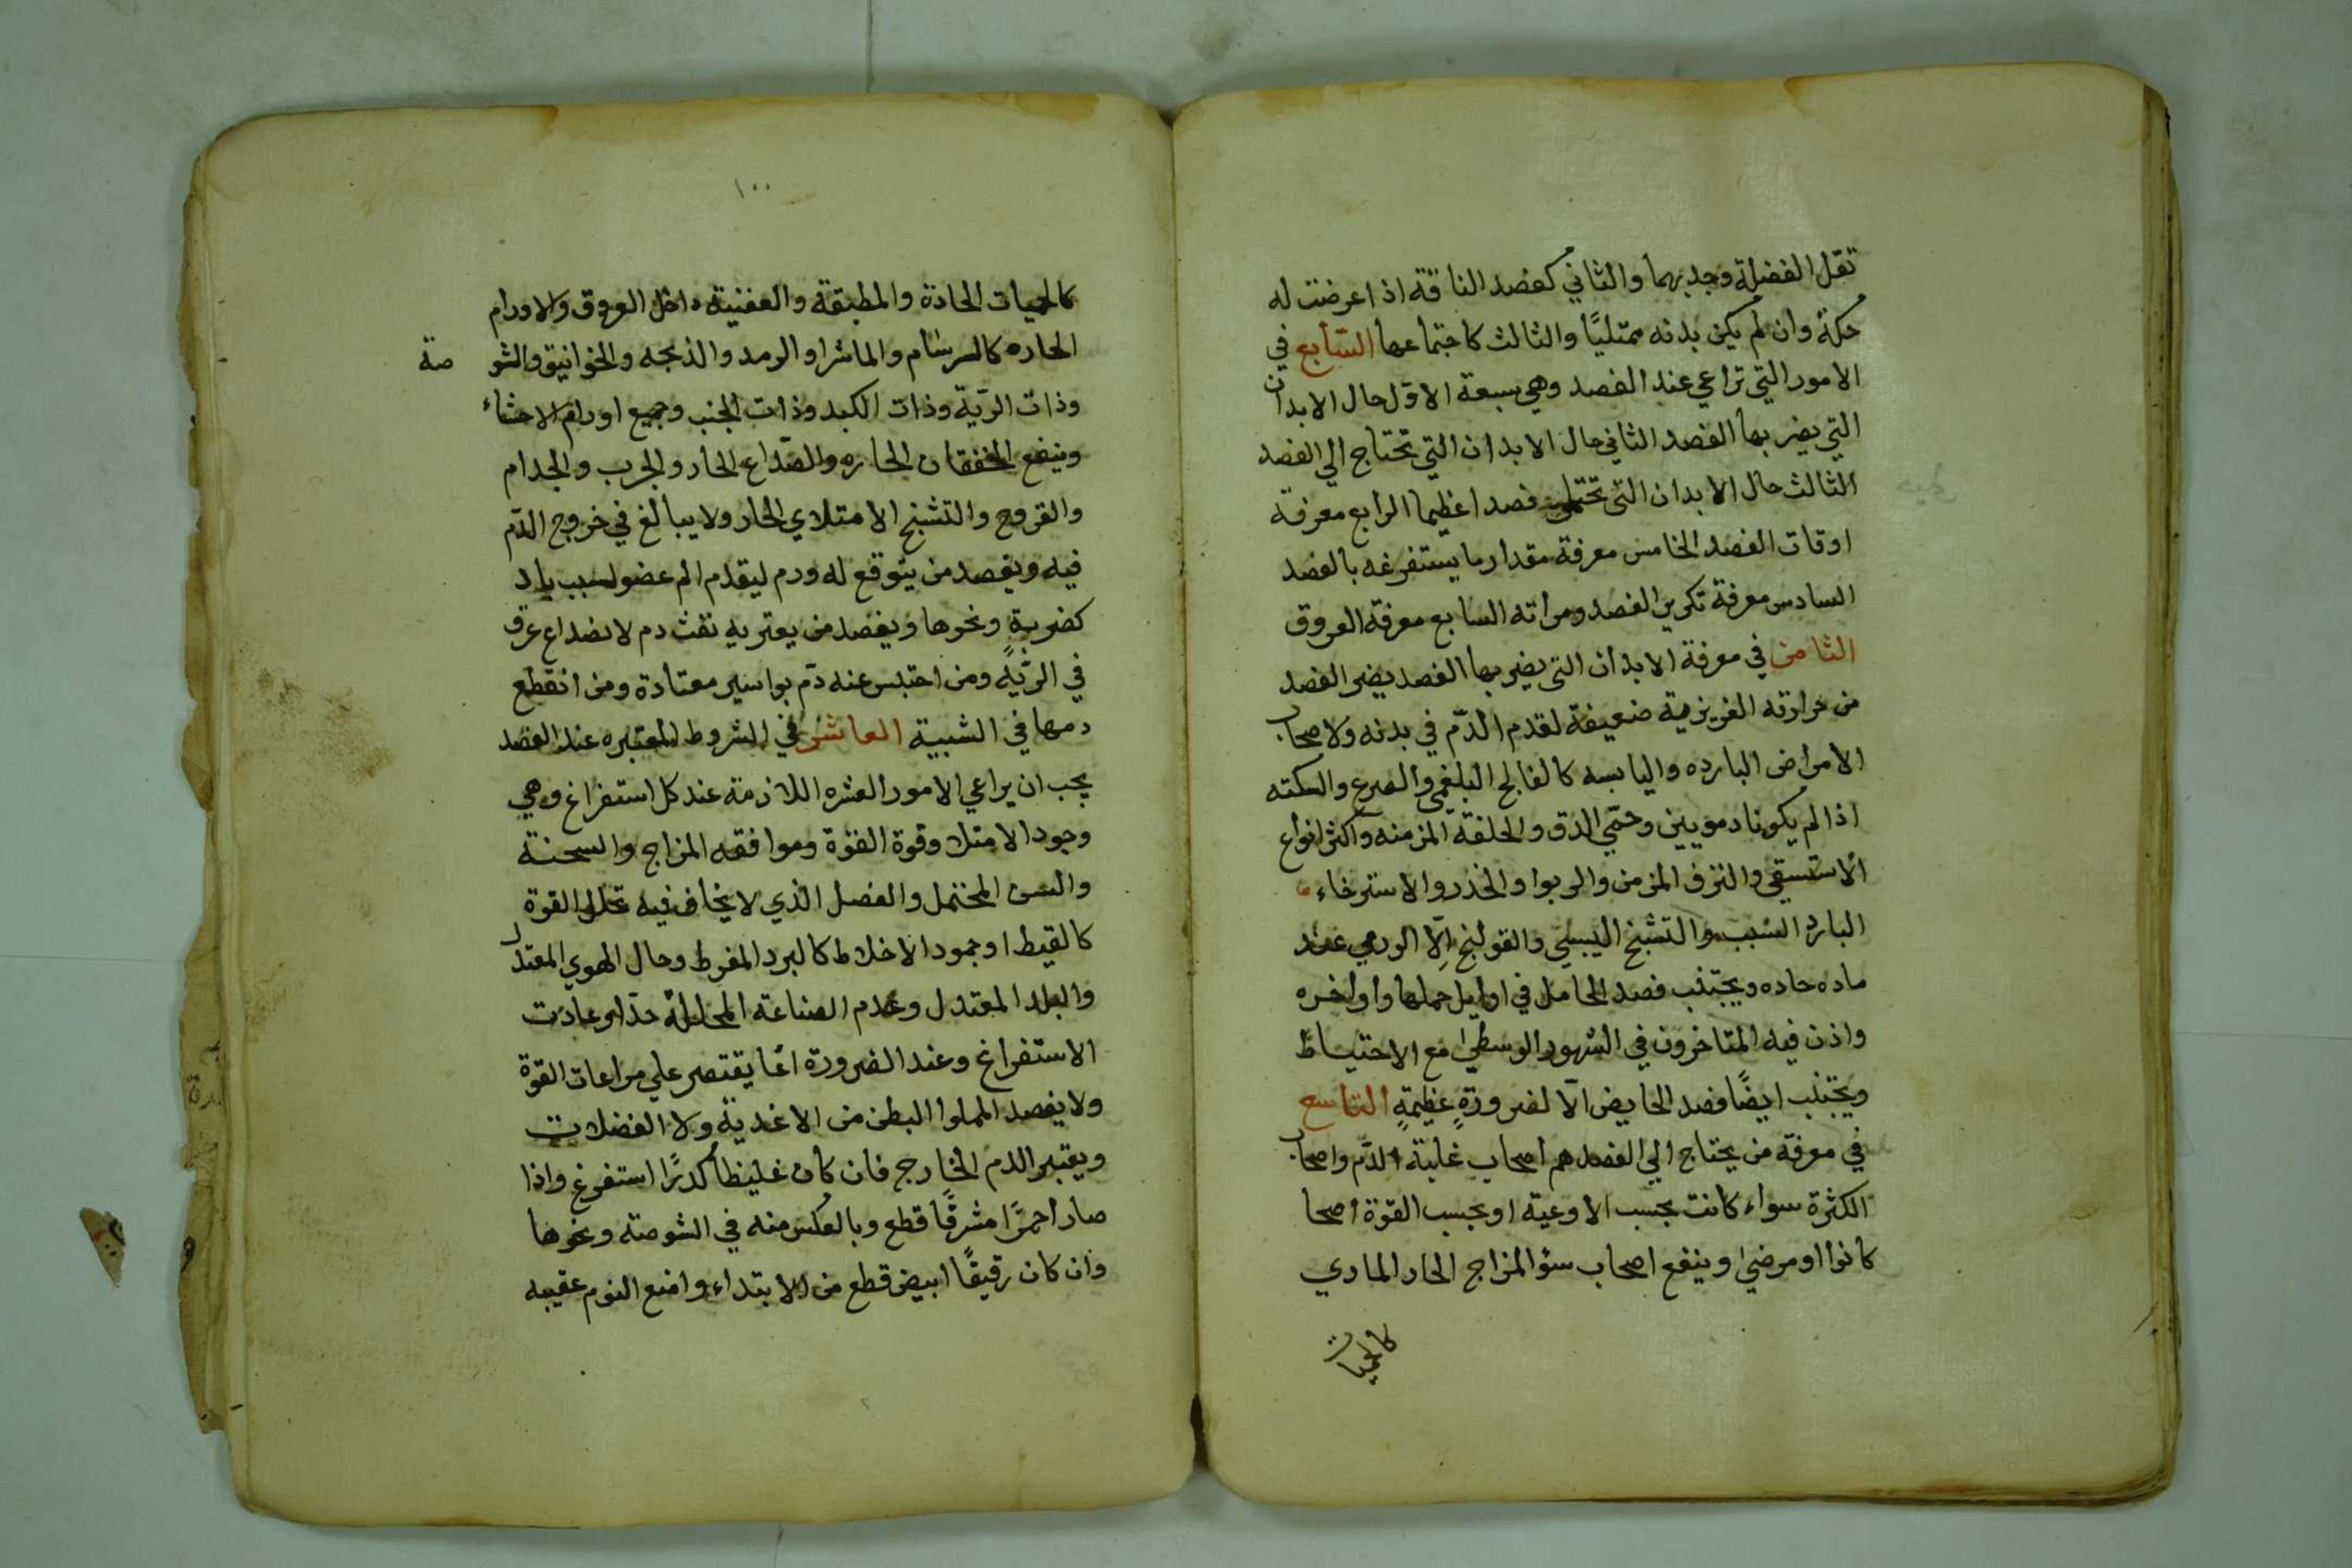 تقل الفضلة وجذبهما والثاني كفصد الناقة اذا عرضت له
حكة وان لم يكن بدنه ممتليًا والثالث كاجتماعها السّابع في
الامور التي تراعي عند الفصد وهي سبعة الاوّل حال الابدان
التي يضر بها الفصد الثاني حال الابدان التي تحتاج الي الفصد
الثالث حال الابدان التي تحتمل فصدا عظيما الرابع معرفة
اوقات الفصد الخامس معرفة مقدار ما يستفرغه بالفصد
السادس معرفة تكرير الفصد ومراته السابع معرفة العروق
الثامن في معرفة الابدان التي يضر بها الفصد يضر الفصد
من حرارته الغريزية ضعيفة لقدم الدّم في بدنه ولاصحاب
الامراض البارده واليابسه كالفالج البلغمي والصرع والسكته
اذا لم يكونا دمويين وحمّي الدق والخلفة المزمنه واكثر انواع
الاستسقي والنزف المزمن والربوا والخدر والاسترخاء
البارد السبب والتشنج اليبسي والقولنج الّا الورمي عند
ماده حاده ويجتنب فصد الحامل في اوايل حملها واواخره
واذن فيه المتاخرون في الشهور الوسطي مع الاحتياط
ويجتنب ايضًا فصد الحايض الّا لضرورةٍ عظيمةٍ التاسع
في معرفة من يحتاج الي الفصد هم اصحاب غلبة الدّم واصحاب
الكثرة سواء كانت بحسب الاوعية او بحسب القوة اصحا
كانوا او مرضي وينفع اصحاب سؤ المزاج الحار المادي
كالحميات
١٠٠
كالحميات الحادة والمطبقة والعفنية داخل العروق والاورام
الحاره كالسرسام والماشرا والرمد والذبحه والخوانيق والشو صة
وذات الريّة وذات الكبد وذات الجنب وجميع اورام الاحشاء
وينفع الخفقان الحاره والصّداع الحار والجرب والجدام
والقروح والتشنج الامتلاي الحار ولا يبالغ في خروج الدّم
فيه ويفصد من يتوقع له ورم ليقدم الم عضو لسبب باد
كضربةٍ ونحوها ويفصد من يعتريه نفث دم لانصداع عرق
في الريّه ومن احتبس عنه دّم بواسير معتادة ومن انقطع
دمها في الشبيبة العاشر في الشروط المعتبره عند الفصد
يجب ان يراعي الامور العشره اللازمة عند كل استفراغ وهي
وجود الامتلا وقوة القوّة وموافقه المزاج والسحنة
والسن المحتمل والفصل الذي لا يخاف فيه تحلل القوة
كالقيظ او جمود الاخلاط كالبرد المفرط وحال الهوي المعتدل
والبلد المعتدل وعدم الصناعة المحللّة حدا وعادت
الاستفراغ وعند الضرورة انما يقتصر علي مراعات القوة
ولا يفصد المملوا البطن من الاغدية ولا الفضلات
ويعتبر الدم الخارج فان كان غليظا كدرًا استفرغ واذا
صار احمرًا مشرقًا قطع وبالعكس منه في الشوصة ونحوها
وان كان رقيقًا ابيض قطع من الابتداء وامنع النوم عقيبه